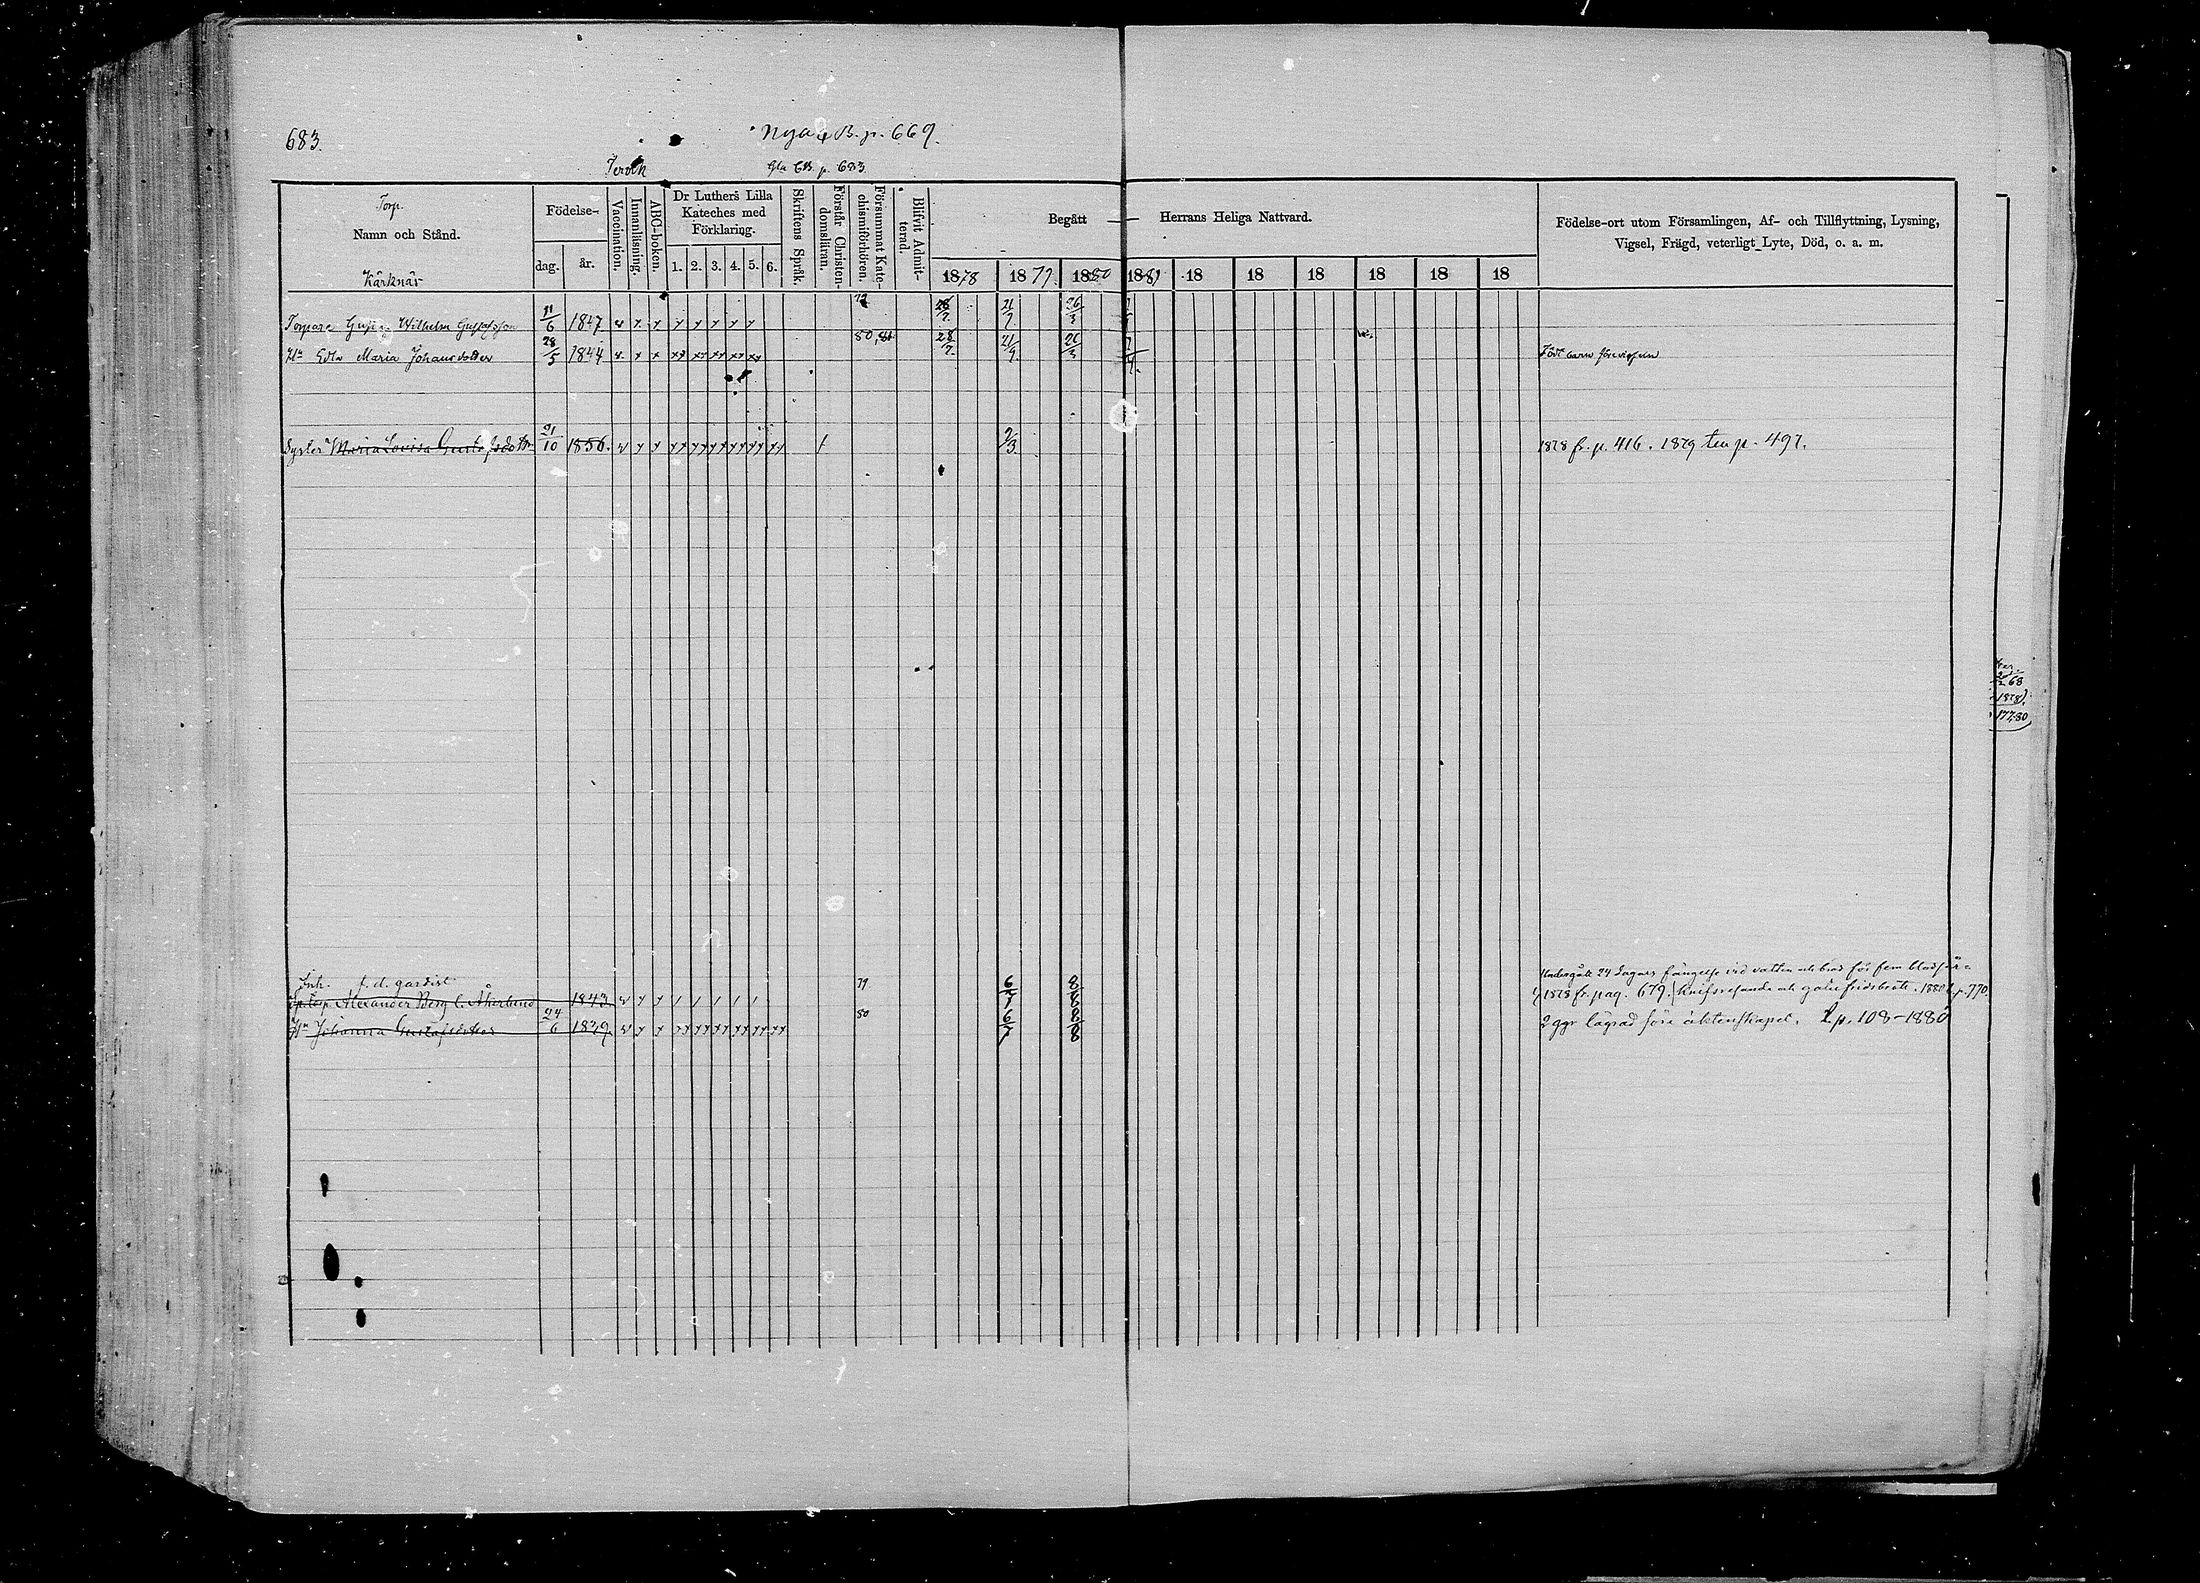 683.
Nya KB. p. 669.
Gla KB. p. 683.
Torp.
Namn och Stånd.
Kärknäs
Födelse-
dag. år.
Vaccination.
Innanläsning.
ABC-boken.
Dr Luthers Lilla
Kateches med
Förklaring.
1. 2. 3. 4. 5. 6.
Skriftens Språk.
Förstår Christen-
domsläran.
Försummat Kate-
chismiförhören.
Blifvit Admit-
terad.
Begått Herrans Heliga Nattvard.
1878 1879. 1880 1881 18 18 18 18 18 18
Födelse-ort utom Församlingen, Af- och Tillflyttning, Lysning,
Vigsel, Frägd, veterligt Lyte, Död, o. a. m.
Torpare Gustaf Wilhelm Gustafsson 11/6 1847 v x x x x x x x 79 28/7 21/9 26/3
Hu Edla Maria Johansdotter 28/5 1844 v x x xx xx xx xx xx 80, 81 28/7 21/9 26/3 Födt barn före vigseln
Syster Maria Lovisa Gustafsdotter 31/10 1856. v x x xx xx xx xx xx xx / 2/3 1878 fr. p. 416. 1879 till p. 497.
Inh. f. d. gardist 79 Undergått 24 dagars fängelse vid vatten och bröd för fem blodsår=
Alexander Berg l. Åkerlund 1843 v x x / / / / / 6/7 8/8 1878 fr. pag. 679. knifsrefvande och gatufridsbrott. 1880 t. p. 770.
Hu Johanna Gustafsdotter 24/6 1829. v x x xx xx xx xx xx xx 80 6/7 8/8 2 ggr lägrad före äktenskapet. t. p. 108-1880
68
1878).
177.80